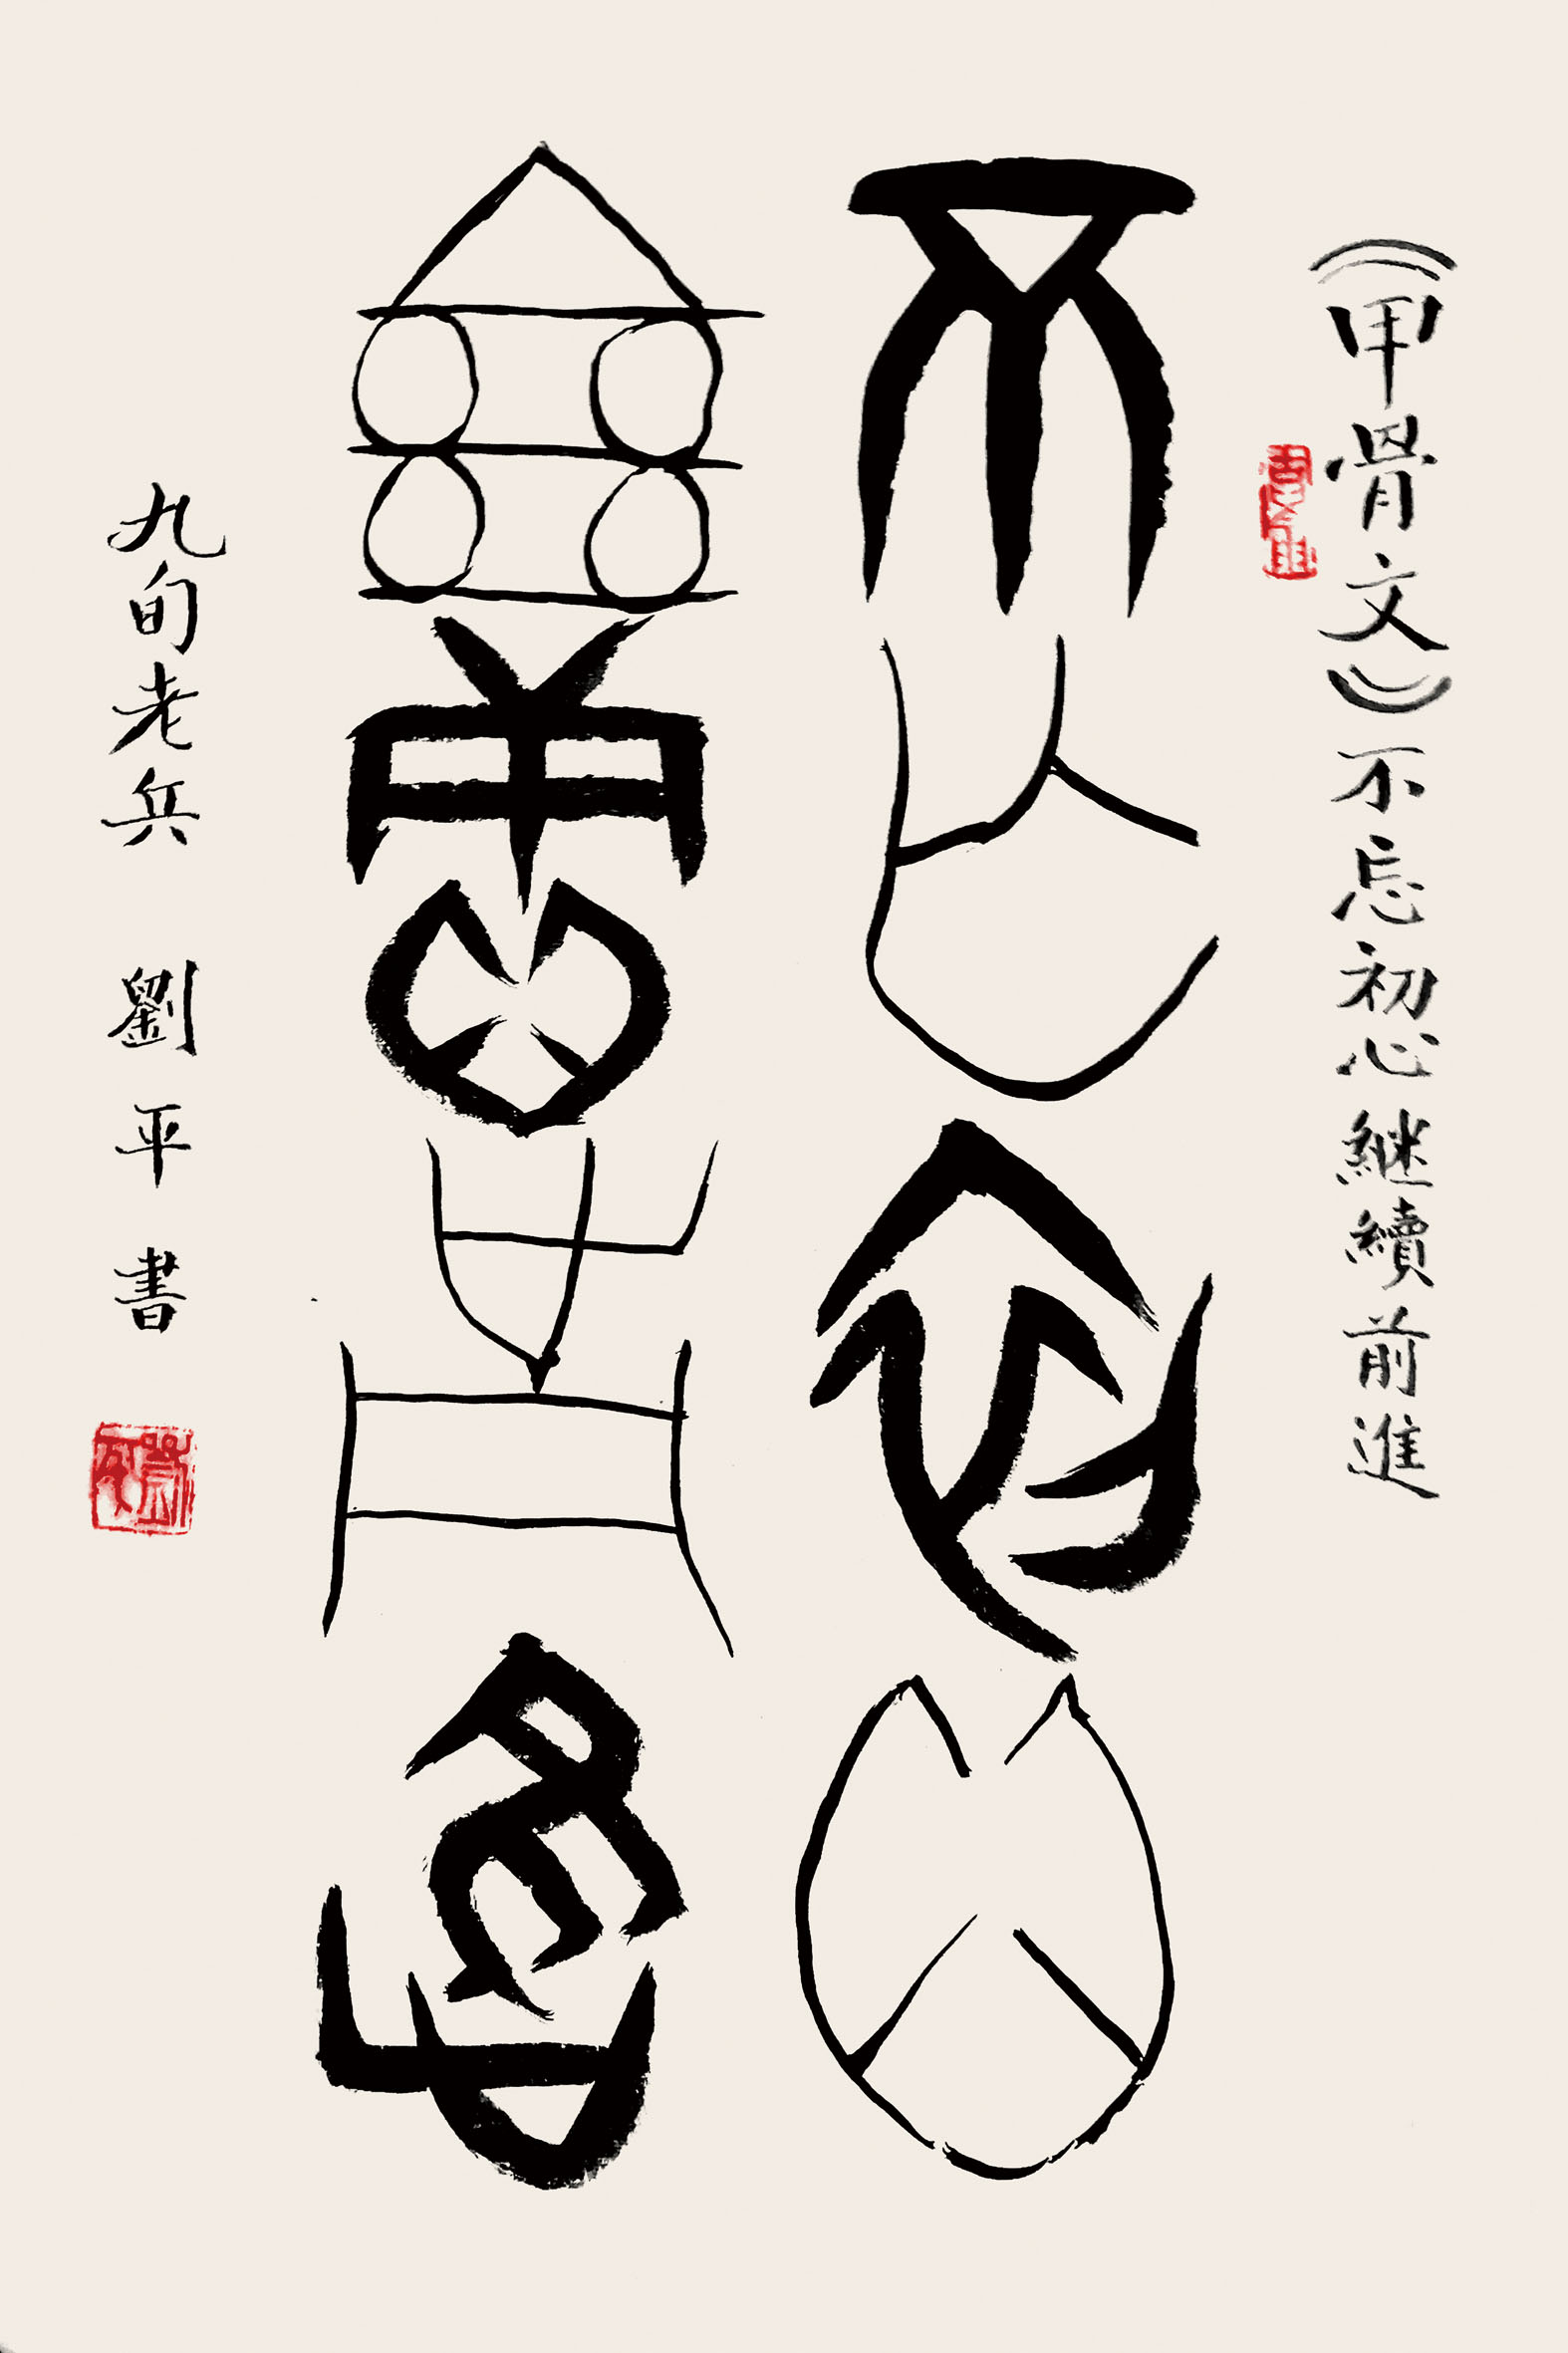 《甲骨文》不忘初心継續前進
不忘初心
継續前進
九旬老兵 劉平書